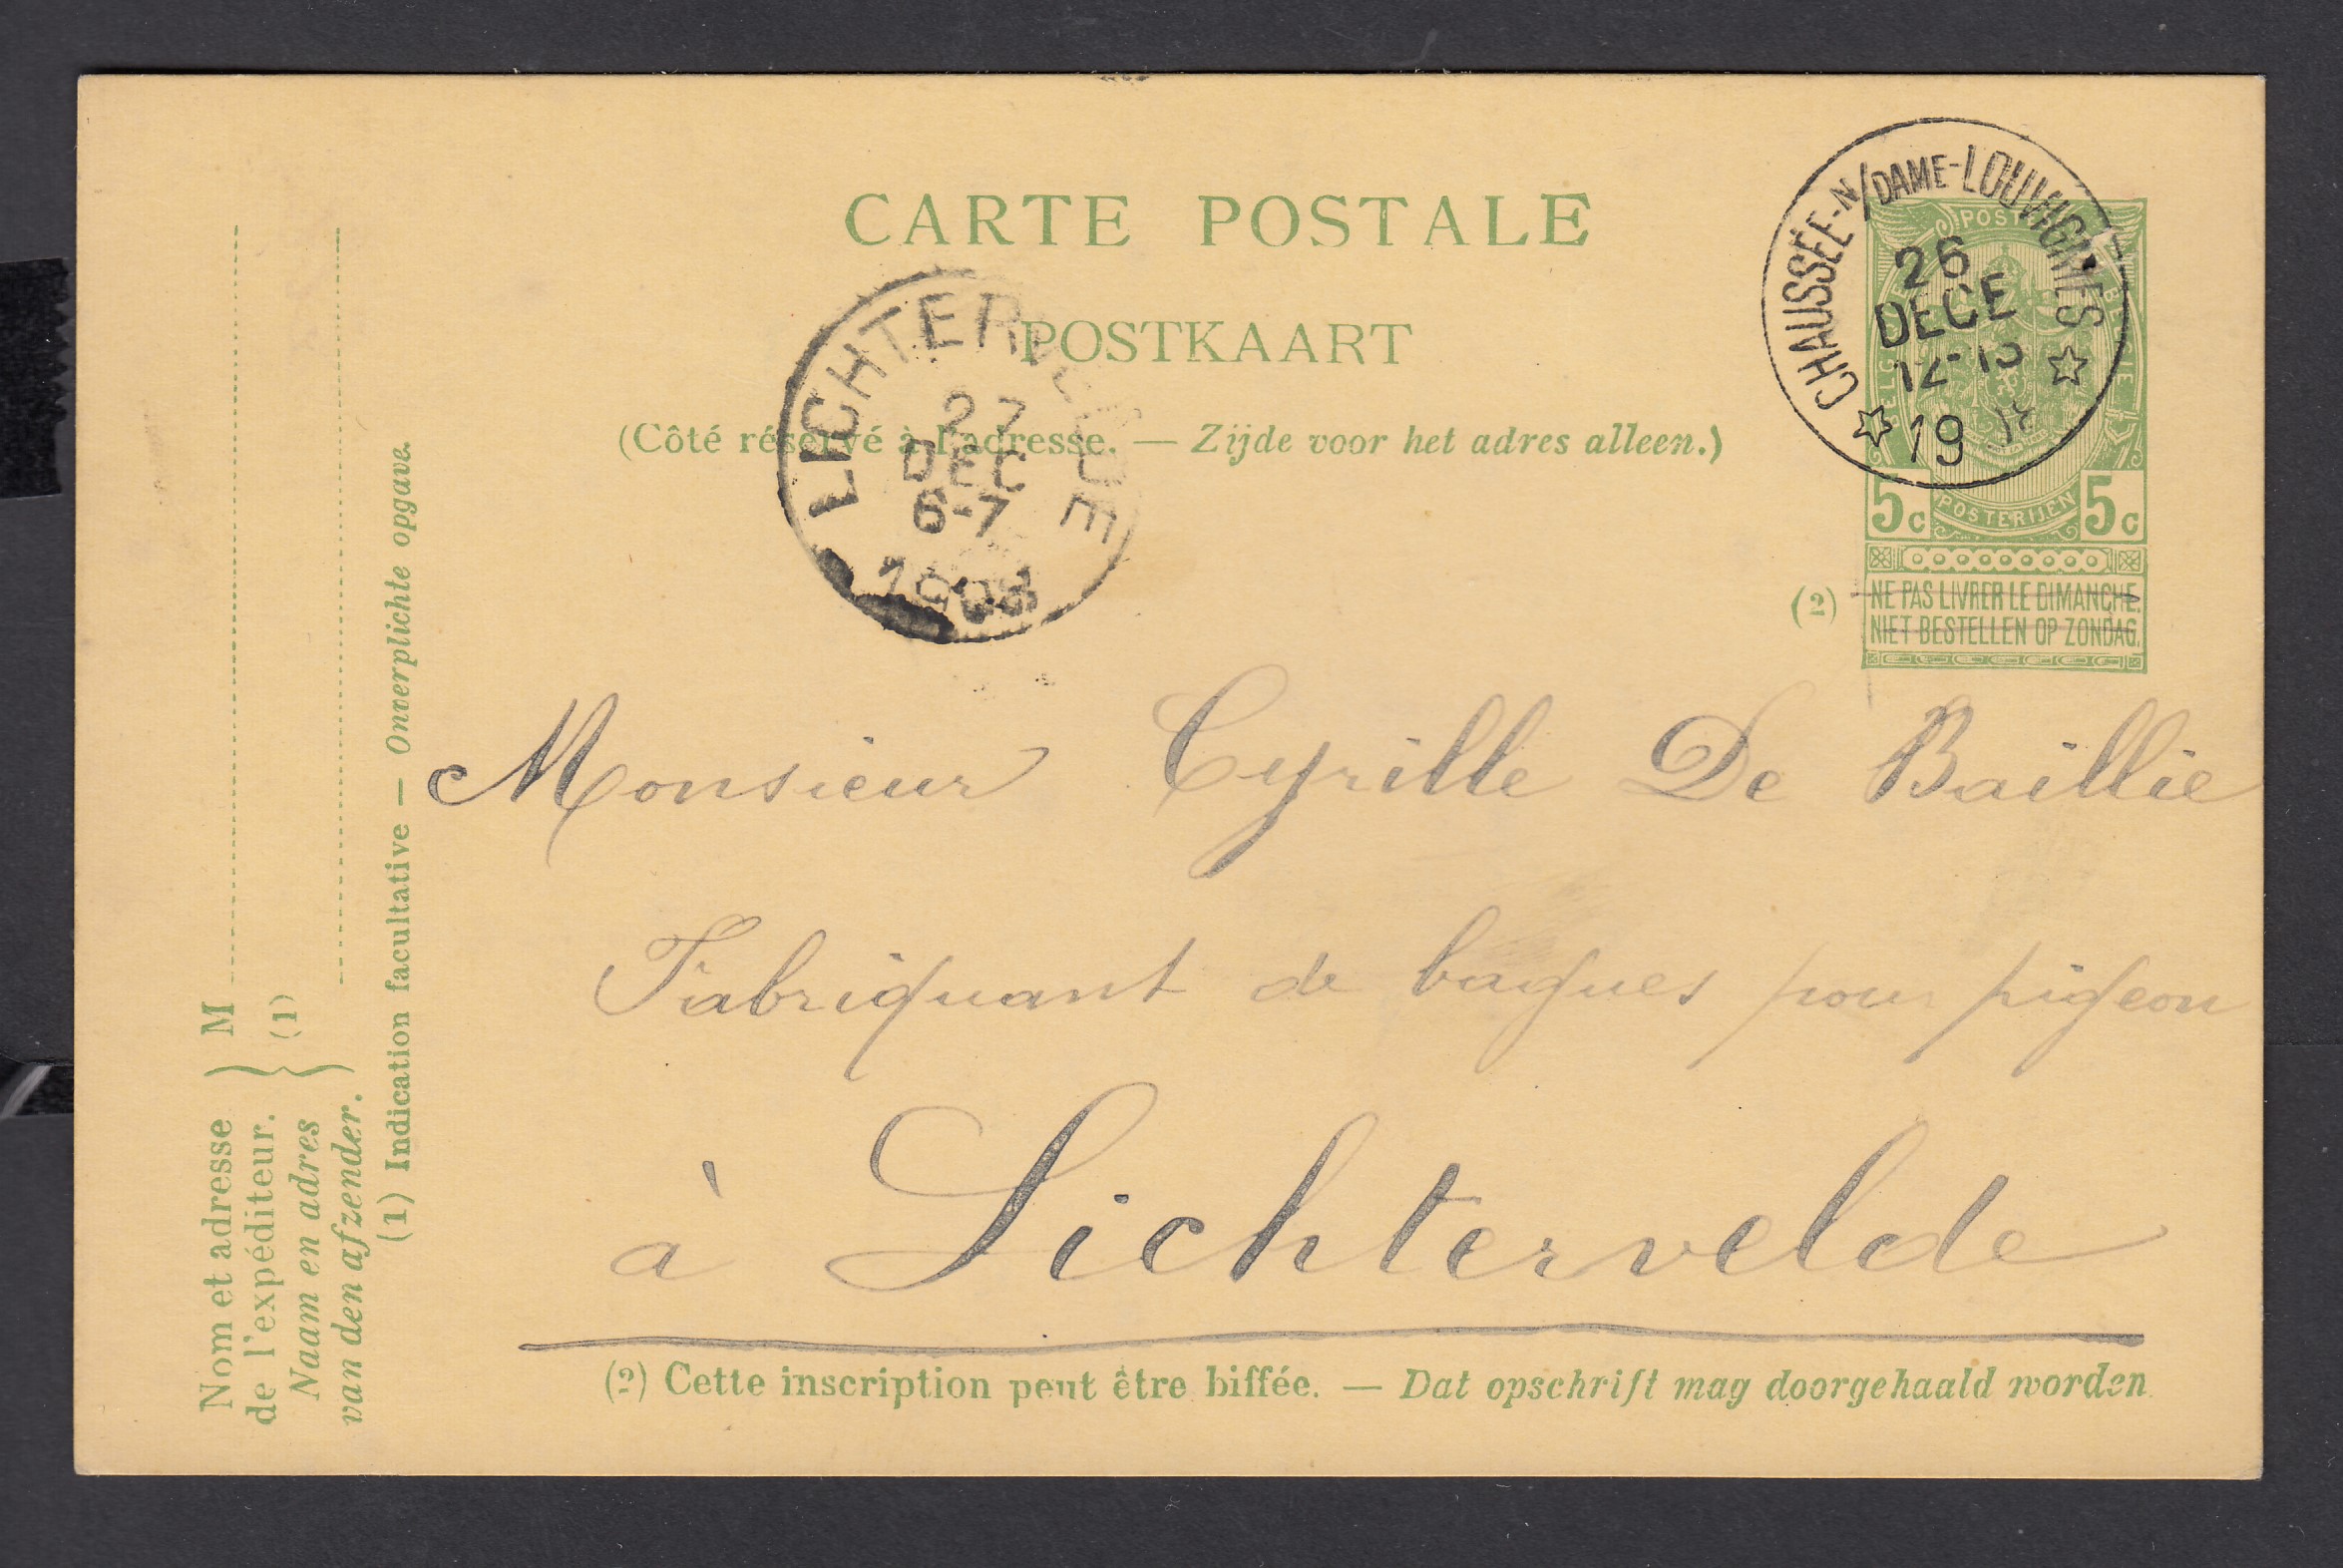 CARTE POSTALE
POSTKAART
(Côté réservé à l'adresse. — Zijde voor het adres alleen.)
CHAUSSÉE-N/DAME-LOUVIGNIES
26
DECE
12-13
19
LICHTERVELDE
27
DEC
6-7
1908
BELGIQUE POSTES BELGIE
5c POSTERIJEN 5c
(2) NE PAS LIVRER LE DIMANCHE.
NIET BESTELLEN OP ZONDAG.
Monsieur Cyrille De Baillie
Fabriquant de bagues pour pigeon
à Lichtervelde
(2) Cette inscription peut être biffée. — Dat opschrift mag doorgehaald worden
Nom et adresse
de l'expéditeur.
Naam en adres
van den afzender.
M
(1)
(1) Indication facultative — Onverplichte opgave.